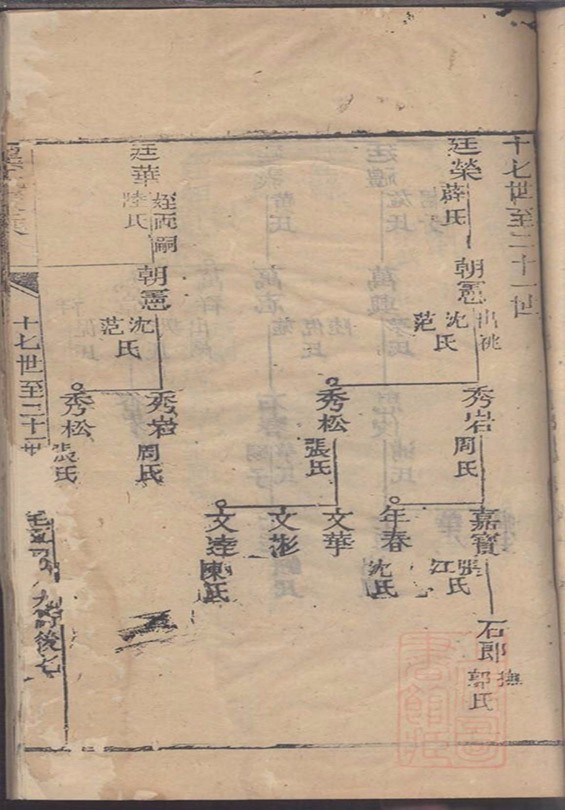 十七世至二十一世
廷榮 薛氏
朝憲 出祧 沈氏 范
秀岩 周氏
嘉寶 張氏 江
石郎 撫 郭氏
年春 沈氏
秀松 張氏
文華
文彬
文逵 陳氏
廷華 陸氏 姪兩嗣
朝憲 沈氏 范
秀岩 周氏
秀松 張氏
十七世至二十一世
後七